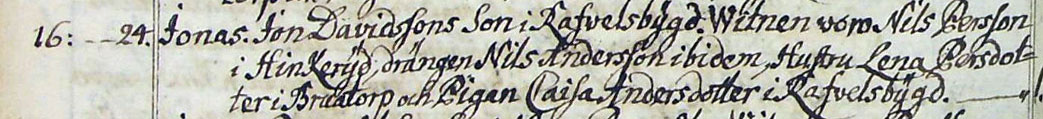 16: — 24. Jonas. Jon Davidssons Son i Rafvelsbygd. Witnen voro Nils Persson
i Hinkeryd, drängen Nils Andersson ibidem, Hustru Lena Persdot-
ter i Bruatorp och Pigan Caisa Andersdotter i Rafvelsbygd. —